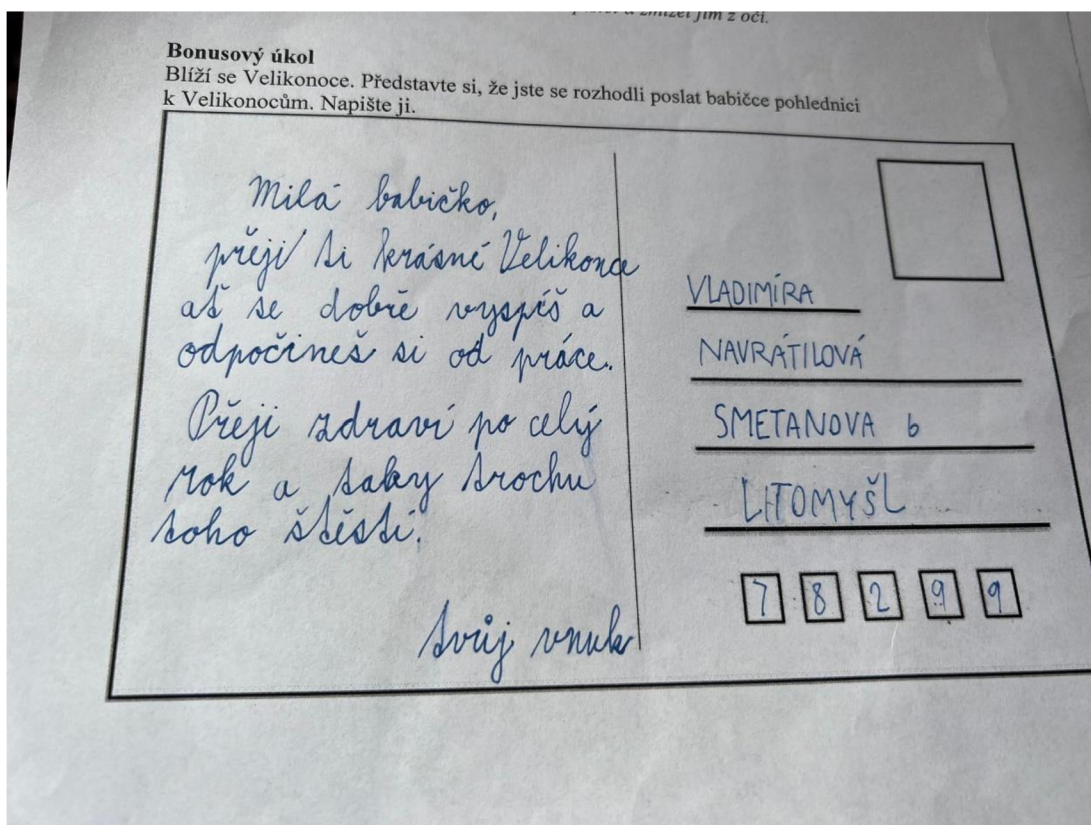 zmizel jim z očí.
Bonusový úkol
Blíží se Velikonoce. Představte si, že jste se rozhodli poslat babičce pohlednici
k Velikonocům. Napište ji.
Milá babičko,
přeji ti krásné Velikonce
ať se dobře vyspíš a
odpočineš si od práce.
Přeji zdraví po celý
rok a taky trochu
toho štěstí.
tvůj vnuk
VLADIMÍRA
NAVRÁTILOVÁ
SMETANOVA 6
LITOMYŠL
7 8 2 9 9